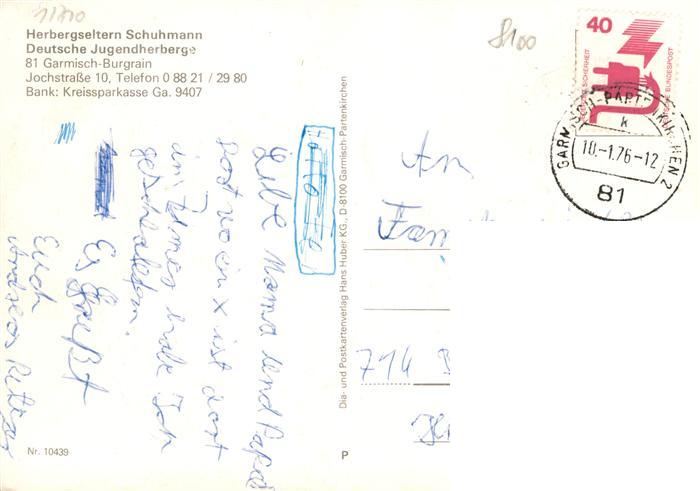 11/700
Herbergseltern Schuhmann
Deutsche Jugendherberge
81 Garmisch-Burgrain
Jochstraße 10, Telefon 0 88 21 / 29 80
Bank: Kreissparkasse Ga. 9407
8100
40
DEUTSCHE BUNDESPOST
GARMISCH-PARTENKIRCHEN 2
k
10.-1.76-12
81
Liebe Mama und Papa
Dort wo ein x ist dort
im Zimer habe Ich
geschlafen.
Es Grüßt
Euch
Andreas
Dia- und Postkartenverlag Hans Huber KG., D-8100 Garmisch-Partenkirchen
An
Fam
714
Nr. 10439
P